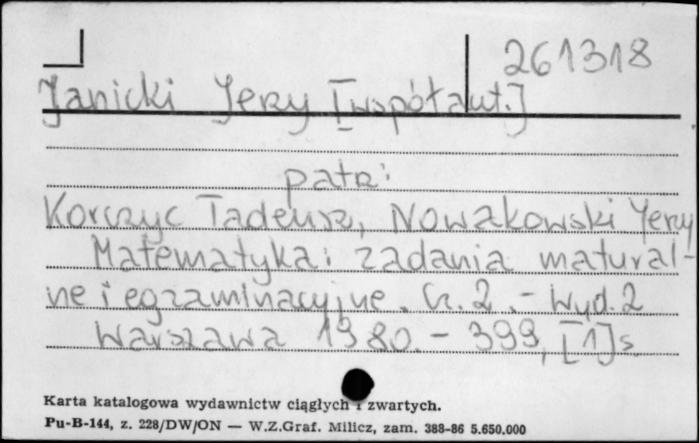 261318
Janicki Jerzy [współaut.]
patrz:
Korczyc Tadeusz, Nowakowski Jerzy
Matematyka: zadania matural-
ne i egzaminacyjne. Cz. 2. - Wyd. 2
Warszawa 1980. - 399, [1] s.
Karta katalogowa wydawnictw ciągłych i zwartych.
Pu-B-144, z. 228/DW/ON — W.Z.Graf. Milicz, zam. 388-86 5.650.000